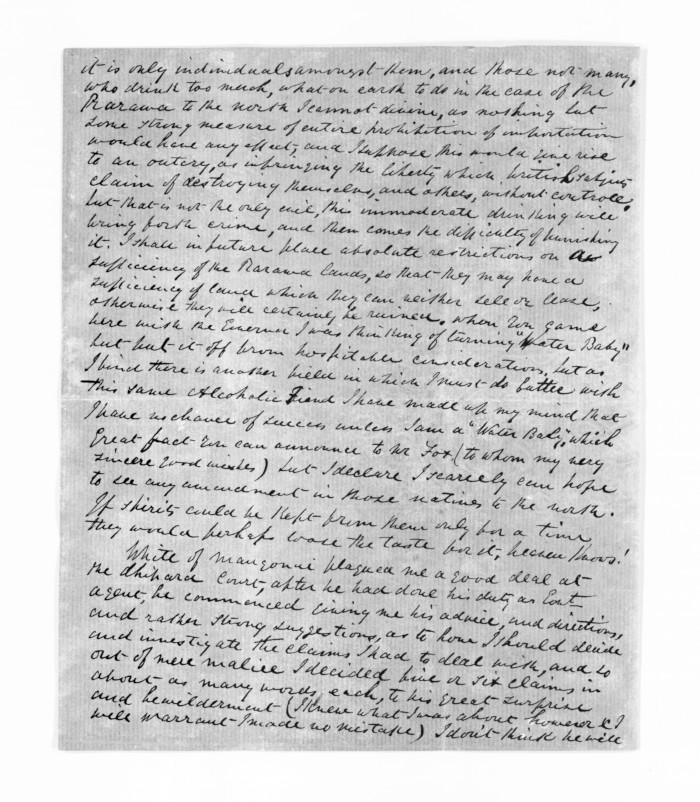 it is only individuals amongst them, and those not many,
who drink too much, what on earth to do in the case of the
Rarawa to the north I cannot divine, as nothing but
some strong measure of entire prohibition of importation
would have any effect, and I suppose this would give rise
to an outcry, as infringing the liberty which British subjects
claim of destroying themselves, and others, without controll.
but that is not the only evil, this immoderate drinking will
bring forth crime, and then comes the difficulty of punishing
it. I shall in future place absolute restrictions on a
sufficiency of the Rarawa lands, so that they may have a
sufficiency of land which they can neither sell or lease,
otherwise they will certainly be ruined. when you came
here with the Governor I was thinking of turning "Water Baby"
but put it off from hospitable considerations, but as
I find there is another field in which I must do battle with
this same Alcoholic Fiend I have made up my mind that
I have no chance of success unless I am a "Water Baby", which
Great fact you can announce to Mr Fox (to whom my very
sincere good wishes) but I declare I scarcely can hope
to see any amendment in those natives to the north.
If spirits could be kept from them only for a time
they would perhaps loose the taste for it, heaven knows!
White of Mangonui plagued me a good deal at
the Court, after he had done his duty as Govt
agent, he commenced giving me his advice, and directions,
and rather strong suggestions, as to how I should decide
and investigate the claims I had to deal with, and so
out of mere malice I decided five or six claims in
about as many words, each, to his great surprise
and bewilderment (I knew what I was about however & I
will warrant I made no mistake) I don't think he will